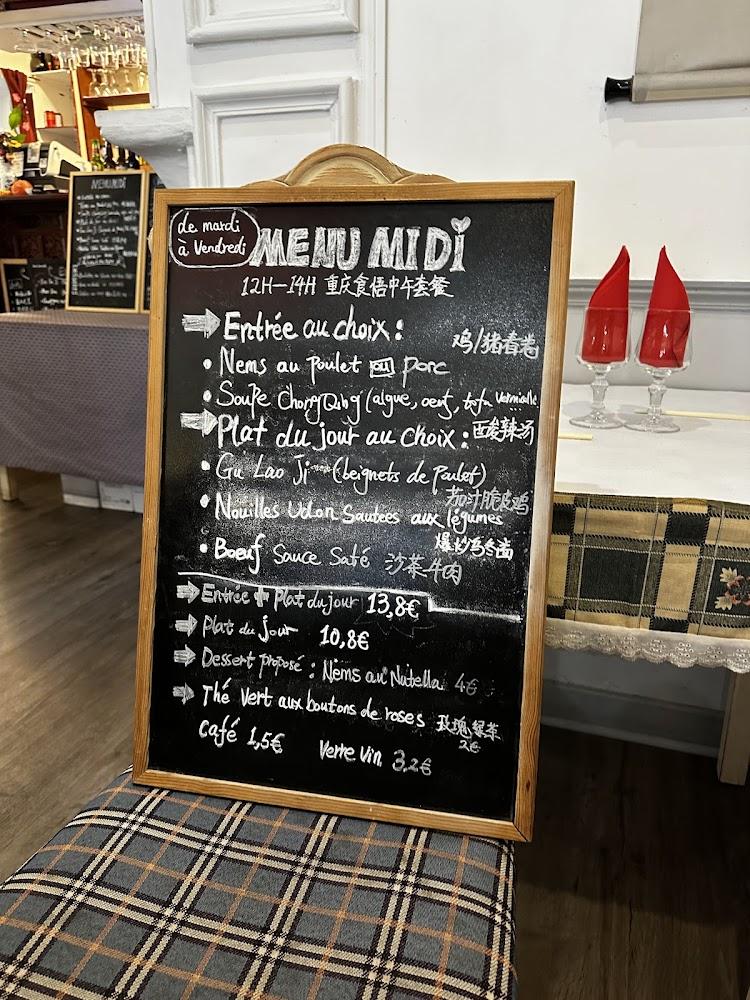 de mardi
à Vendredi
MENU MIDI
12H—14H 重庆食悟中午套餐
Entrée au choix :
鸡/猪春卷
• Nems au poulet ou porc
• Soupe ChongQing (algue, oeuf, tofu, Vermicelle
Plat du jour au choix : 酸辣汤
• Gu Lao Ji (beignets de Poulet)
茄汁脆皮鸡
• Nouilles Udon Sautées aux légumes
爆炒乌冬面
• Boeuf Sauce Saté 沙茶牛肉
Entrée + Plat du jour 13,8€
Plat du jour 10,8€
Dessert proposé : Nems au Nutella 4€
Thé Vert aux boutons de roses 玫瑰绿茶
2€
Café 1,5€ Verre Vin 3,2€
MENU MIDI